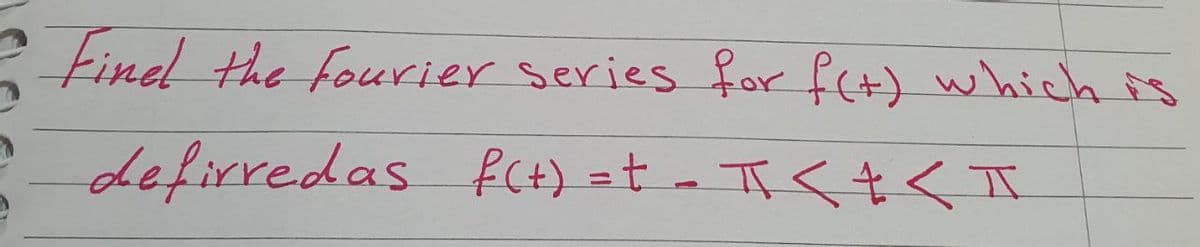 Finel the Fourier series for f(t) which is
defirredas f(t) = t - π < t < π